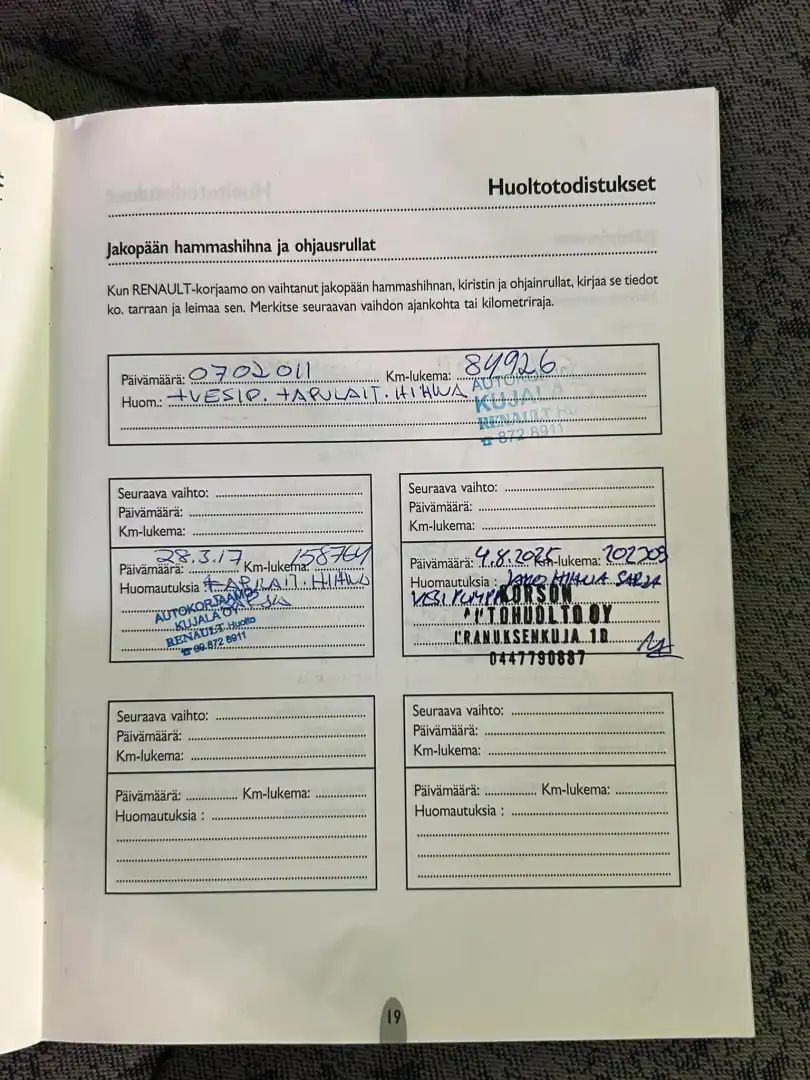 Huoltotodistukset
Jakopään hammashihna ja ohjausrullat
Kun RENAULT-korjaamo on vaihtanut jakopään hammashihnan, kiristin ja ohjainrullat, kirjaa se tiedot
ko. tarraan ja leimaa sen. Merkitse seuraavan vaihdon ajankohta tai kilometriraja.
Päivämäärä: 0702011 Km-lukema: 84926
Huom.: +VESIP. +APULAIT. HIHNA
AUTOKORJAAMO
KUJALA
RENAULT Huolto
☎ 872 8911
Seuraava vaihto:
Päivämäärä:
Km-lukema:
Päivämäärä: 28.3.17 Km-lukema: 158764
Huomautuksia +APULAIT. HIHNA
SARJA
AUTOKORJAAMO
KUJALA OY
RENAULT Huolto
☎ 09 872 8911
Seuraava vaihto:
Päivämäärä:
Km-lukema:
Päivämäärä: 4.8.2025 Km-lukema: 202709
Huomautuksia : JAKO HIHNA SARJA
VESI PUMPPU
KORSON
AUTOHUOLTO OY
URANUKSENKUJA 10
0447790887
Seuraava vaihto:
Päivämäärä:
Km-lukema:
Päivämäärä: Km-lukema:
Huomautuksia :
Seuraava vaihto:
Päivämäärä:
Km-lukema:
Päivämäärä: Km-lukema:
Huomautuksia :
19